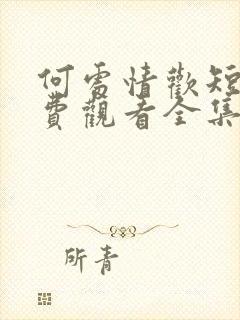 何處情歡短
費觀看全集
所青